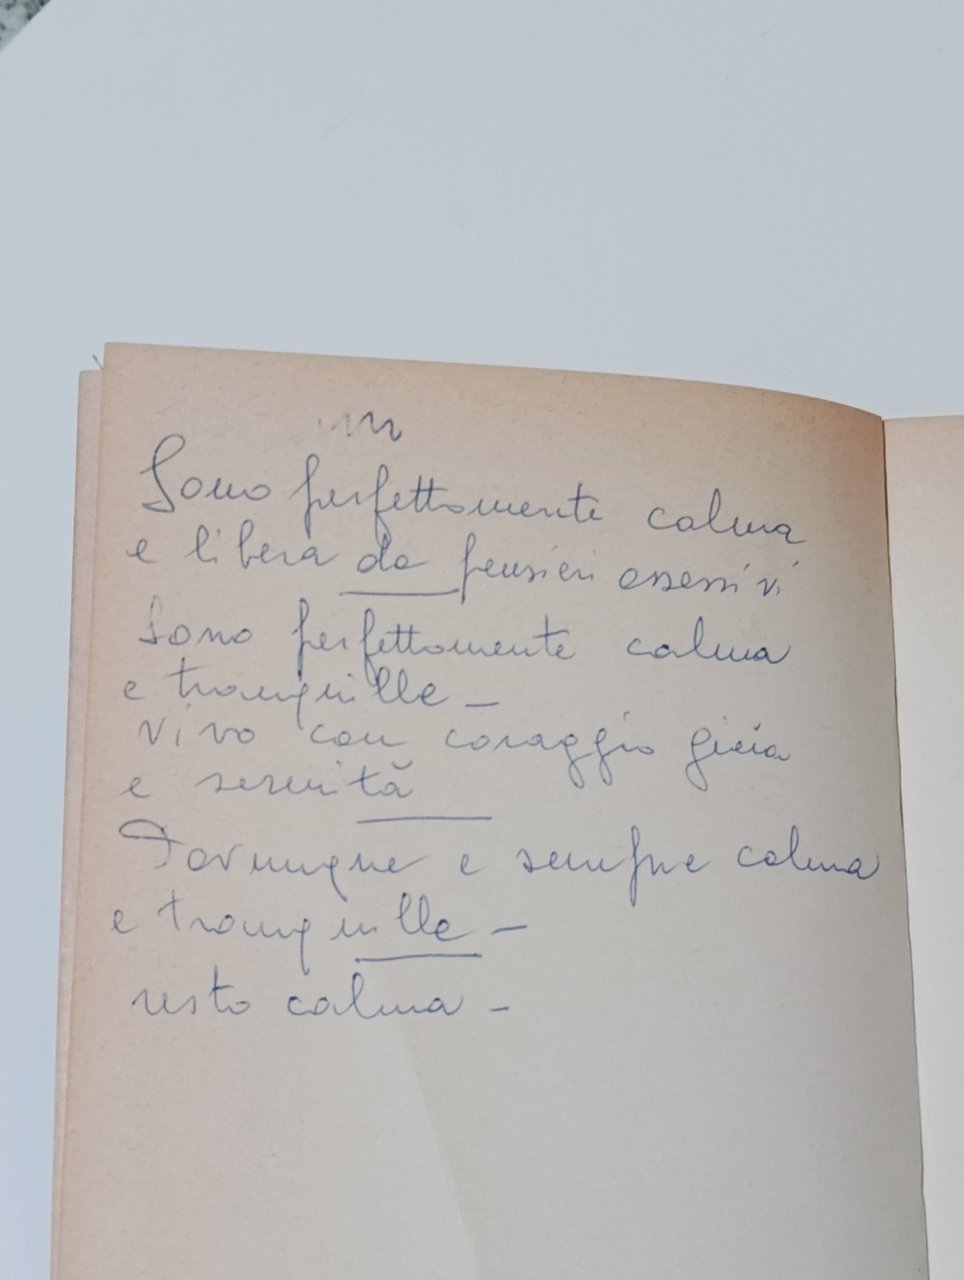 Sono perfettamente calma
e libera da pensieri ossessivi
Sono perfettamente calma
e tranquilla -
vivo con coraggio gioia
e serenità
Dovunque e sempre calma
e tranquilla -
resto calma -